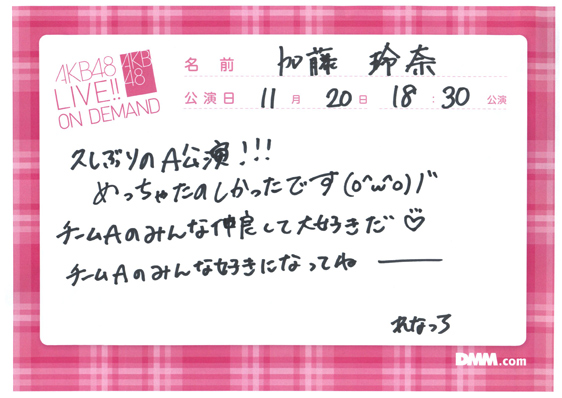 AKB48
LIVE!!
ON DEMAND
AKB
48
名前 加藤 玲奈
公演日 11月 20日 18:30 公演
久しぶりのA公演!!!
めっちゃたのしかったです(o^ω^o)バ
チームAのみんな仲良して大好きだ♡
チームAのみんな好きになってね ――
れなっち
DMM.com